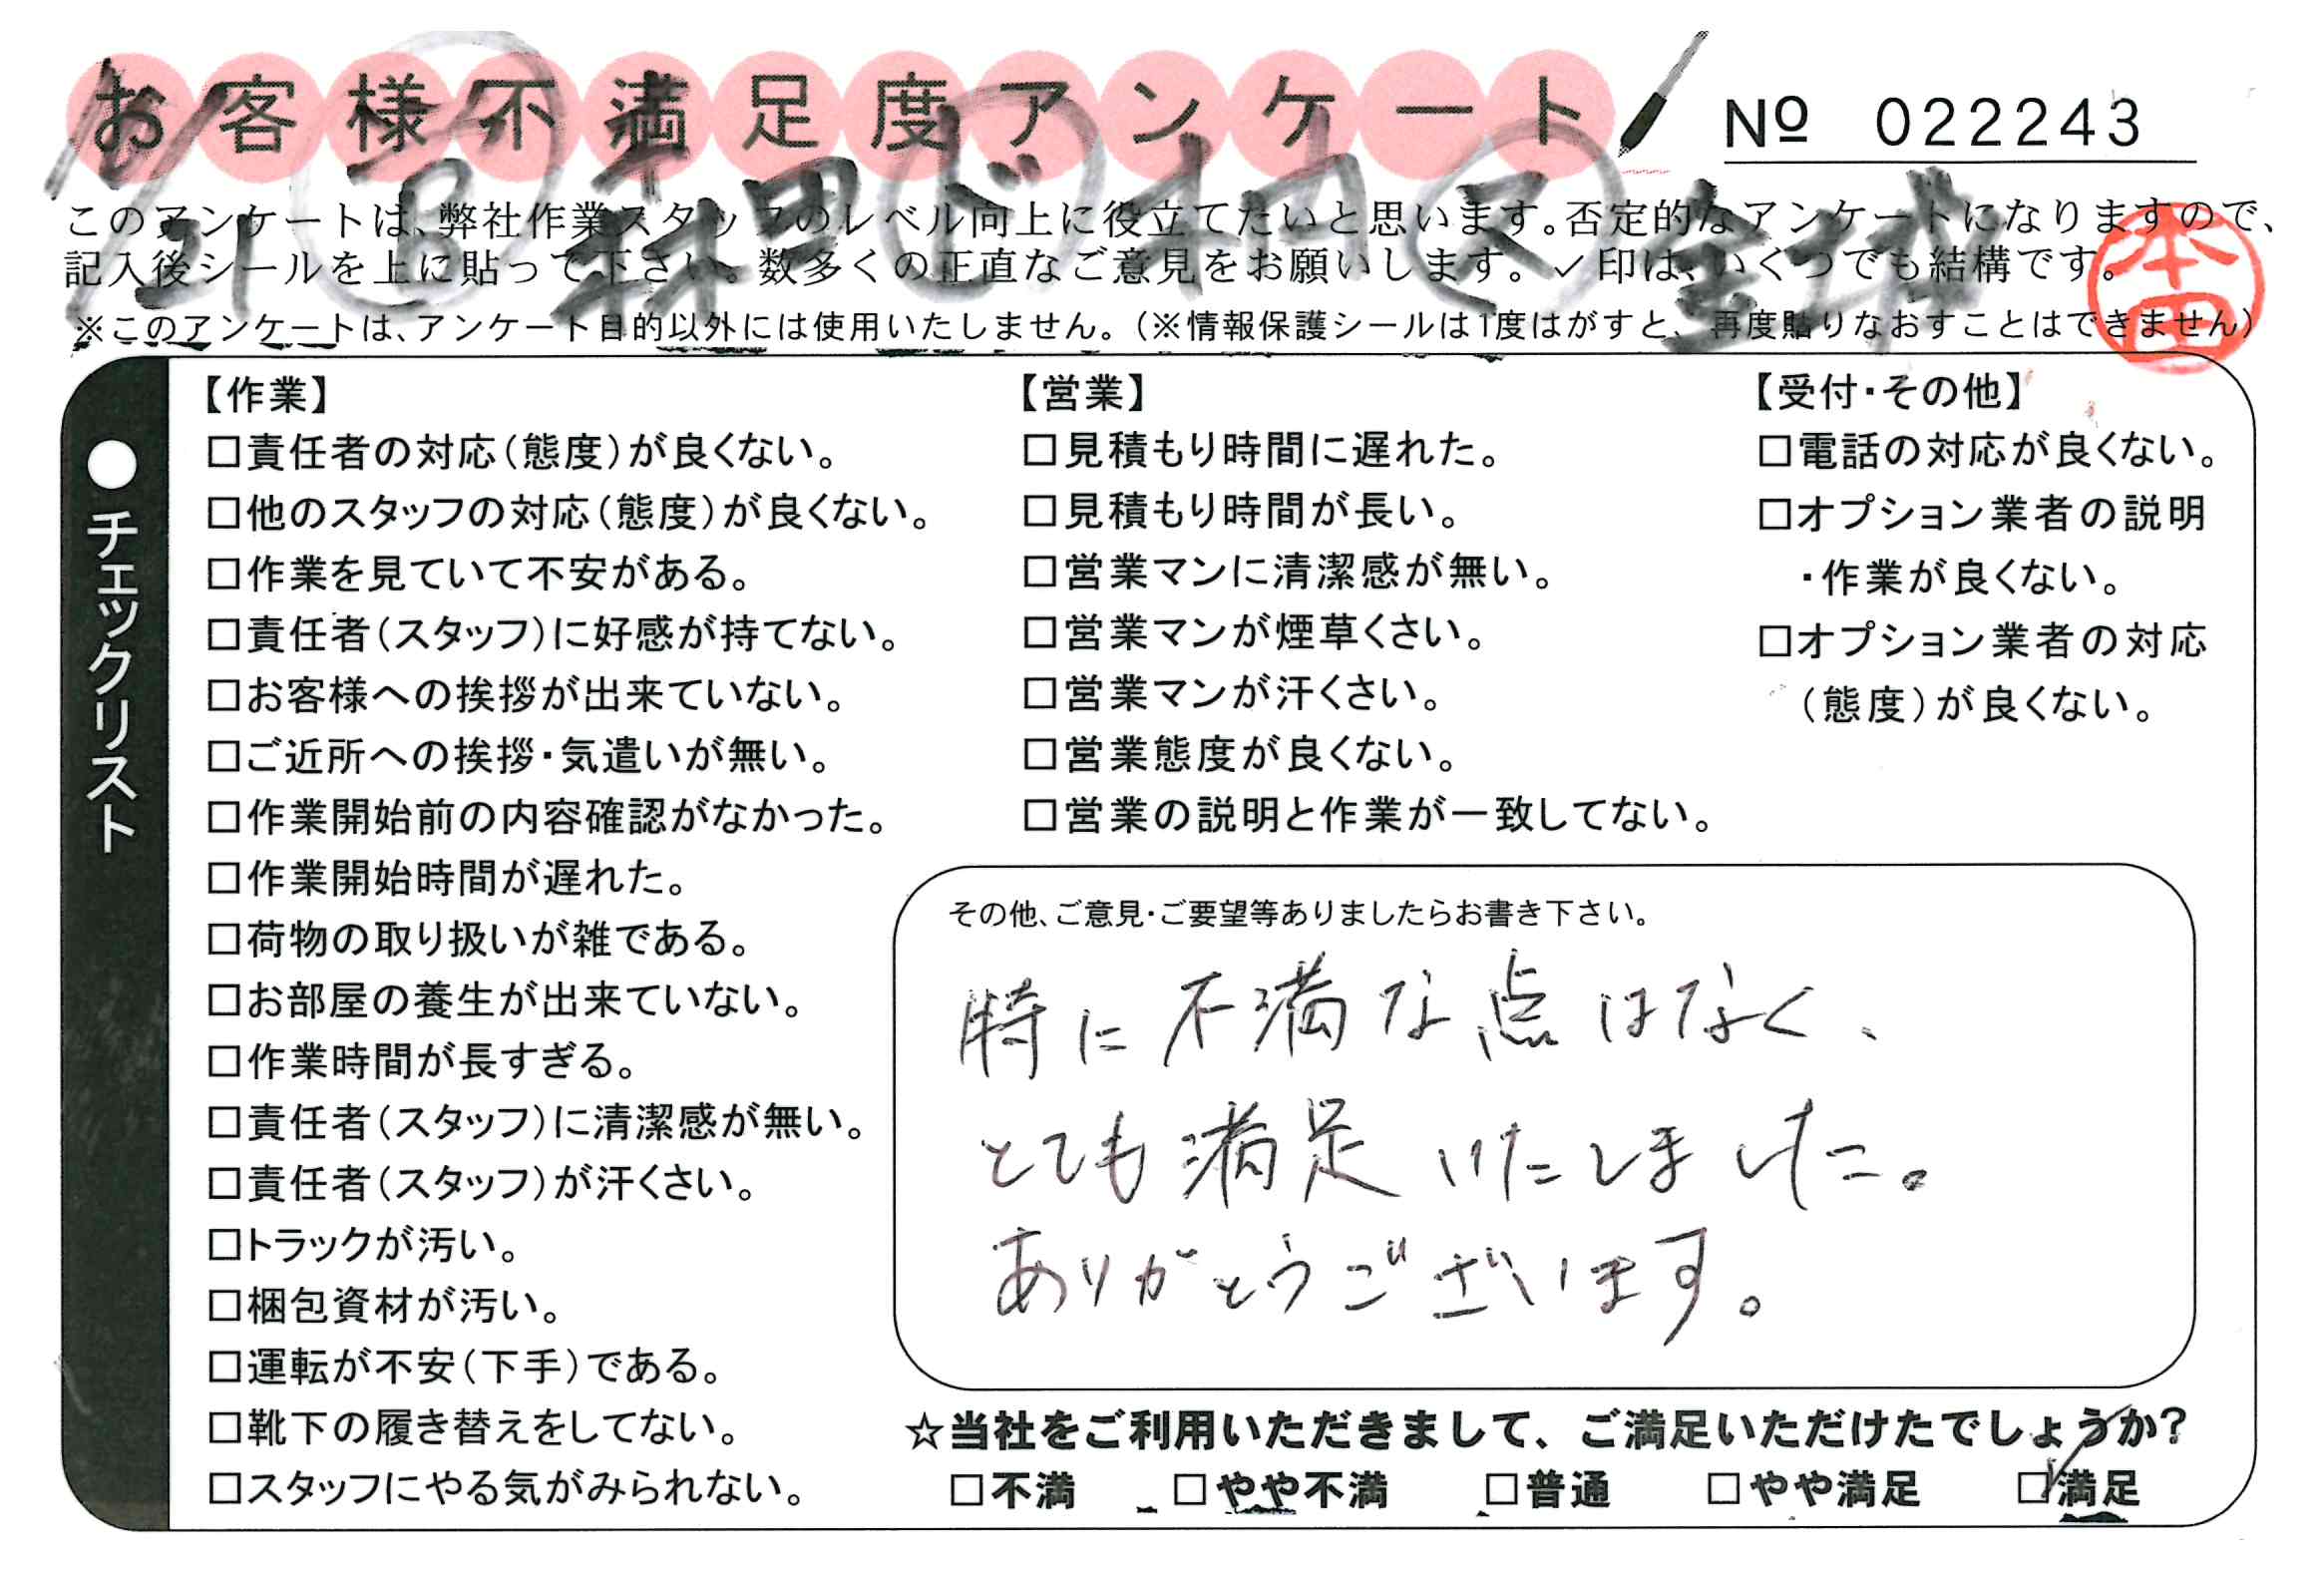 お客様不満足度アンケート
№ 022243
このアンケートは、弊社作業スタッフのレベル向上に役立てたいと思います。否定的なアンケートになりますので、
記入後シールを上に貼って下さい。数多くの正直なご意見をお願いします。✓印は、いくつでも結構です。
※このアンケートは、アンケート目的以外には使用いたしません。(※情報保護シールは1度はがすと、再度貼りなおすことはできません)
1/21 Ⓑ 森田 ド 村口 ス 金城
本田
●チェックリスト
【作業】
□責任者の対応(態度)が良くない。
□他のスタッフの対応(態度)が良くない。
□作業を見ていて不安がある。
□責任者(スタッフ)に好感が持てない。
□お客様への挨拶が出来ていない。
□ご近所への挨拶・気遣いが無い。
□作業開始前の内容確認がなかった。
□作業開始時間が遅れた。
□荷物の取り扱いが雑である。
□お部屋の養生が出来ていない。
□作業時間が長すぎる。
□責任者(スタッフ)に清潔感が無い。
□責任者(スタッフ)が汗くさい。
□トラックが汚い。
□梱包資材が汚い。
□運転が不安(下手)である。
□靴下の履き替えをしてない。
□スタッフにやる気がみられない。
【営業】
□見積もり時間に遅れた。
□見積もり時間が長い。
□営業マンに清潔感が無い。
□営業マンが煙草くさい。
□営業マンが汗くさい。
□営業態度が良くない。
□営業の説明と作業が一致してない。
【受付・その他】
□電話の対応が良くない。
□オプション業者の説明
・作業が良くない。
□オプション業者の対応
(態度)が良くない。
その他、ご意見・ご要望等ありましたらお書き下さい。
特に不満な点はなく、
とても満足いたしました。
ありがとうございます。
☆当社をご利用いただきまして、ご満足いただけたでしょうか?
□不満 □やや不満 □普通 □やや満足 ☑満足